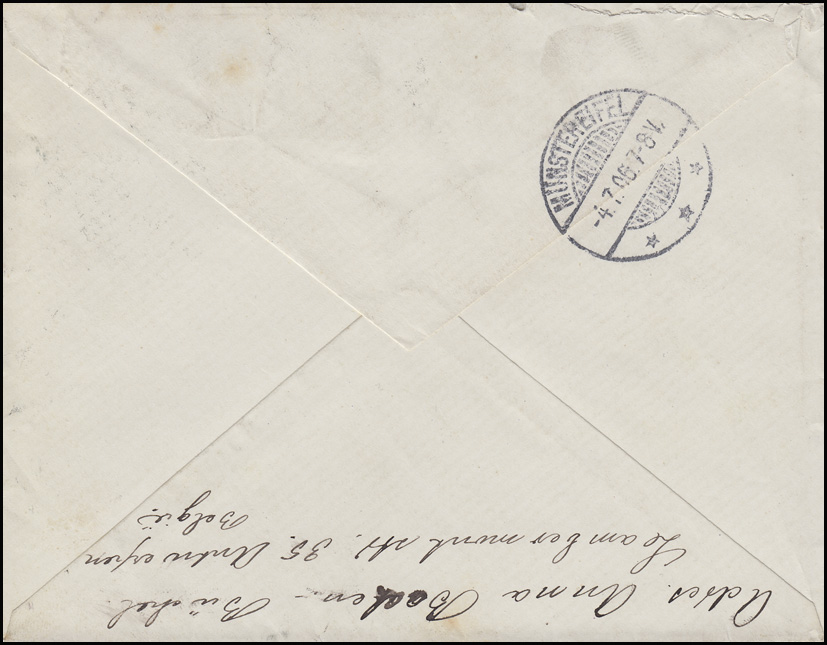 MÜNSTEREIFEL
-4.7.06.7-8V.
Adres. Anna Backen - Büchel
Leambermont str. 35. Antwerpen
België